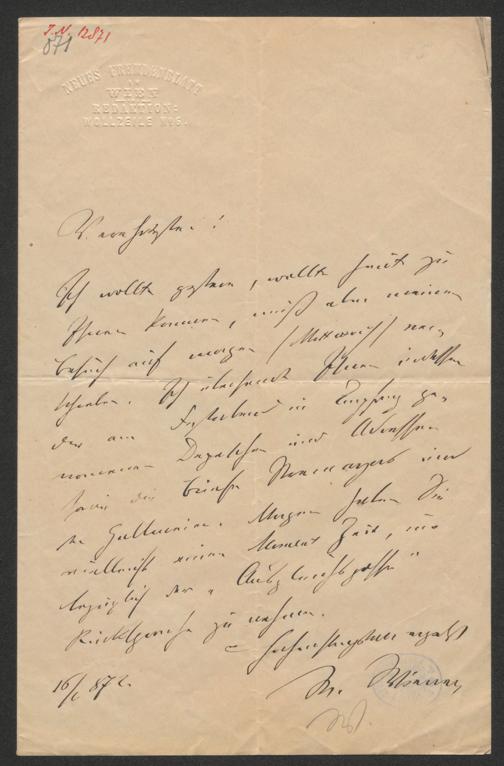 I.N. 12871
871
NEUES FREMDENBLATT
WIEN
REDAKTION:
WOLLZEILE No 6.
Verehrtester!
Ich wollte gestern, wollte heute zu
Ihnen kommen, muß aber meinen
Besuch auf morgen (Mittwoch) ver-
schieben. Ich übersende Ihnen indessen
die am in Empfang ge-
nommenen Depeschen und Adressen
sowie die Briefe und
Morgen haben Sie
vielleicht einen Moment Zeit, um
bezüglich der "
Rücksprache zu nehmen.
Hochachtungsvoll ergebenst
16/ 872.